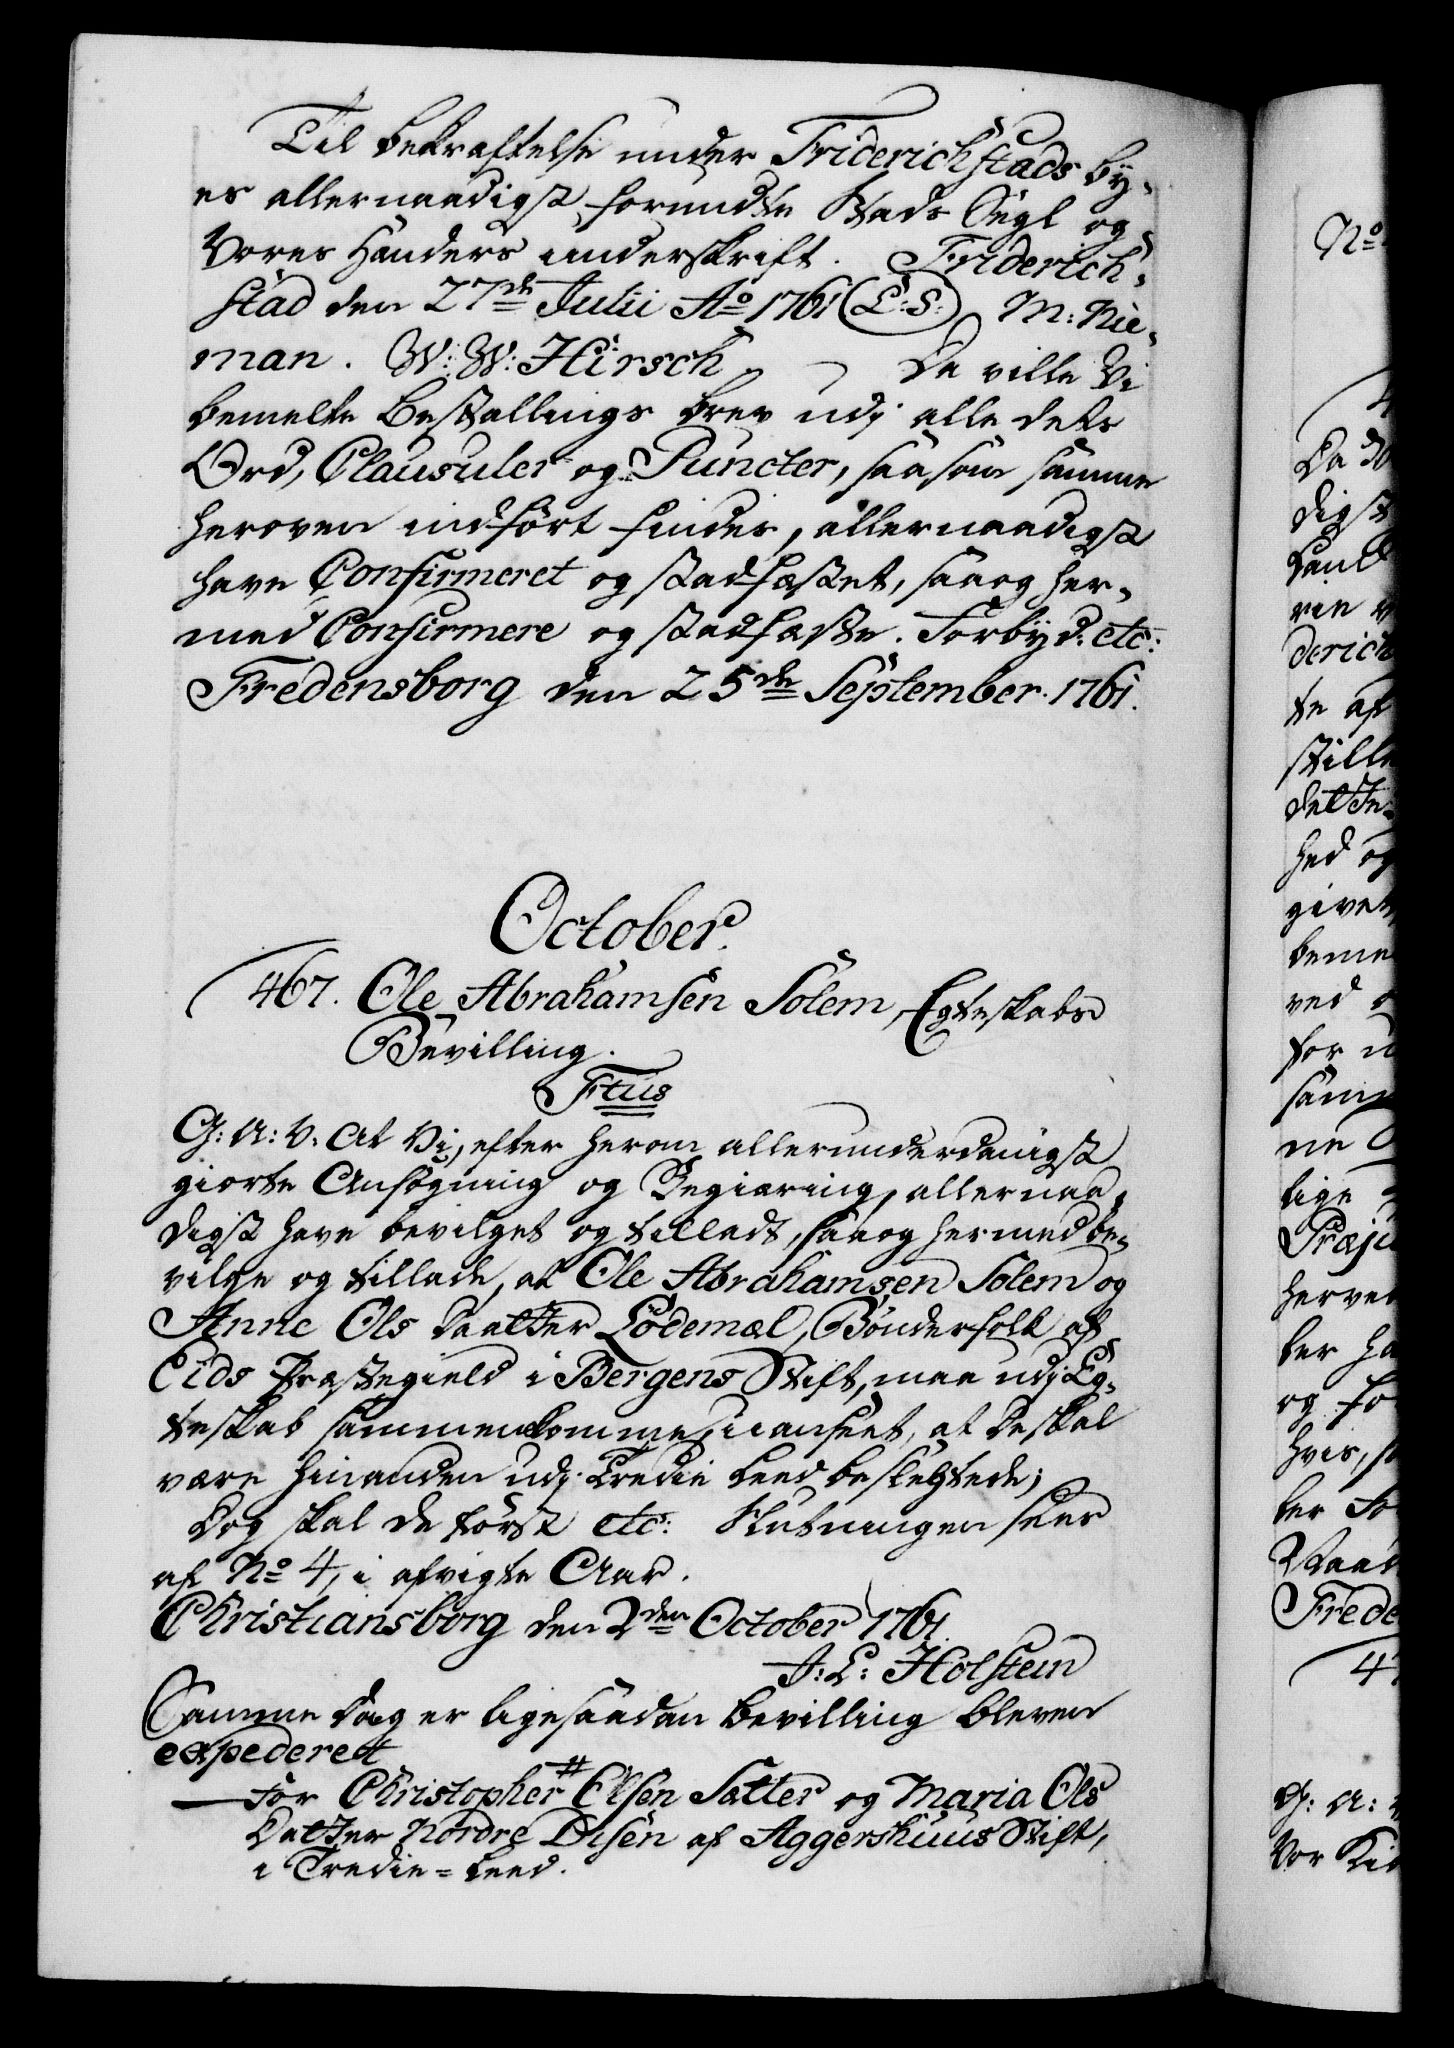 Til bekraftelse under Friderichstads by-
es allernaadigst forundte Stads Segl og
Vores Hænders underskrift. Friderich-
stad den 27de Julii Ao 1761 (L:S:) M: Nie-
man. W: W: Hirsch. Da ville Vi
bemelte Bestallings brev udj alle dets
Ord, Clausuler og Puncter, saasom samme
heroven indført findes, allernaadigst
have Confirmeret og stadfæstet, saa og her-
med Confirmere og stadfæste. Forbyd: etc:
Fredensborg den 25de September. 1761.
October.
467. Ole Abrahamsen Solem, Egteskabs
Bevilling.
Ftus
G: A: V: At Vi, efter herom allerunderdanigst
giorte Ansøgning og Begiæring, allernaa-
digst have bevilget og tilladt, saa og hermed be-
vilge og tillade, at Ole Abrahamsen Solem og
Anne Ols Daatter Lødemæl, Bønderfolk af
Eids Præstegield i Bergens Stift, maa udj Eg-
teskab sammenkomme, uanseet, at de skal
være hinanden udj Tredie Leed beslegtede;
Dog skal de først etc: Slutningen sees
af No 4, i afvigte Aar.
Christiansborg den 2den October 1761.
J: L: Holstein
Samme dag er ligesaadan bevilling bleven
expederet
For Christopher Elsen Sætter og Maria Ols
Datter Nordre Disen af Aggershuus Stift,
i Tredie-Leed.
No
derich
te af
hed og
ved
for
ne
lige
og
Frede
G: A:
Vor